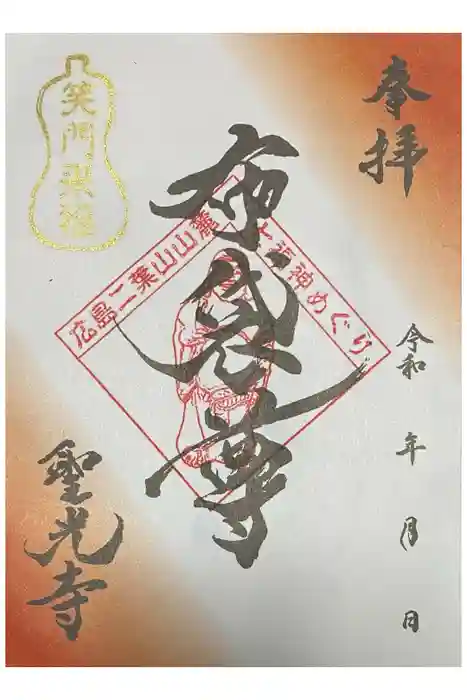 奉拝
令和 年 月 日
布袋尊
広島二葉山山麓七福神めぐり
笑門来福
聖光寺